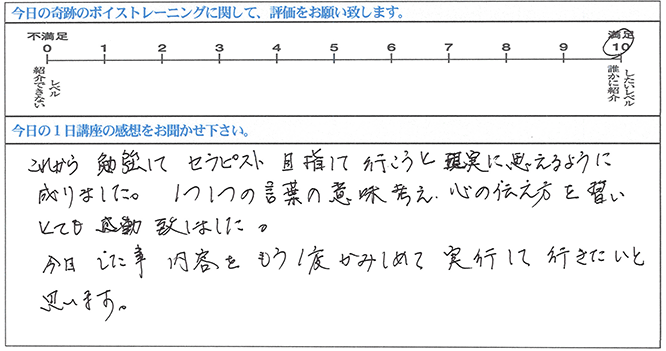 今日の奇跡のボイストレーニングに関して、評価をお願い致します。
不満足 満足
0 1 2 3 4 5 6 7 8 9 10
紹介できないレベル
誰かに紹介したいレベル
今日の1日講座の感想をお聞かせ下さい。
これから 勉強して セラピスト 目指して 行こうと 現実に思えるように
成りました。 1つ1つの言葉の意味考え、心の伝え方を習い
とても 感動 致しました。
今日 した事 内容を もう1度 かみしめて 実行して 行きたいと
思います。